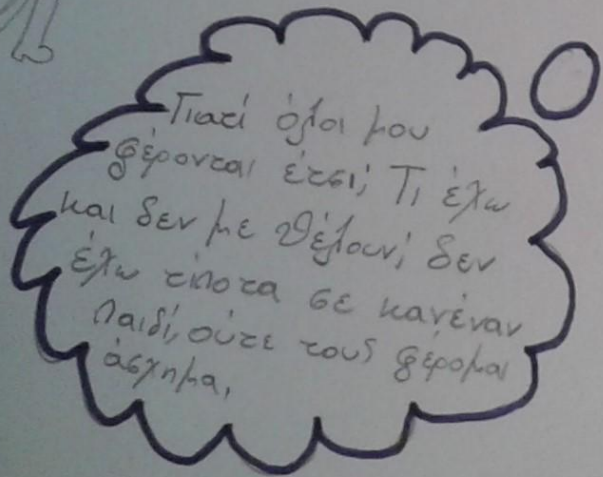 Γιατί όλοι μου
φέρονται έτσι; Τι έχω
και δεν με θέλουν; δεν
έχω τίποτα σε κανέναν
παιδί, ούτε τους φέρομαι
άσχημα,